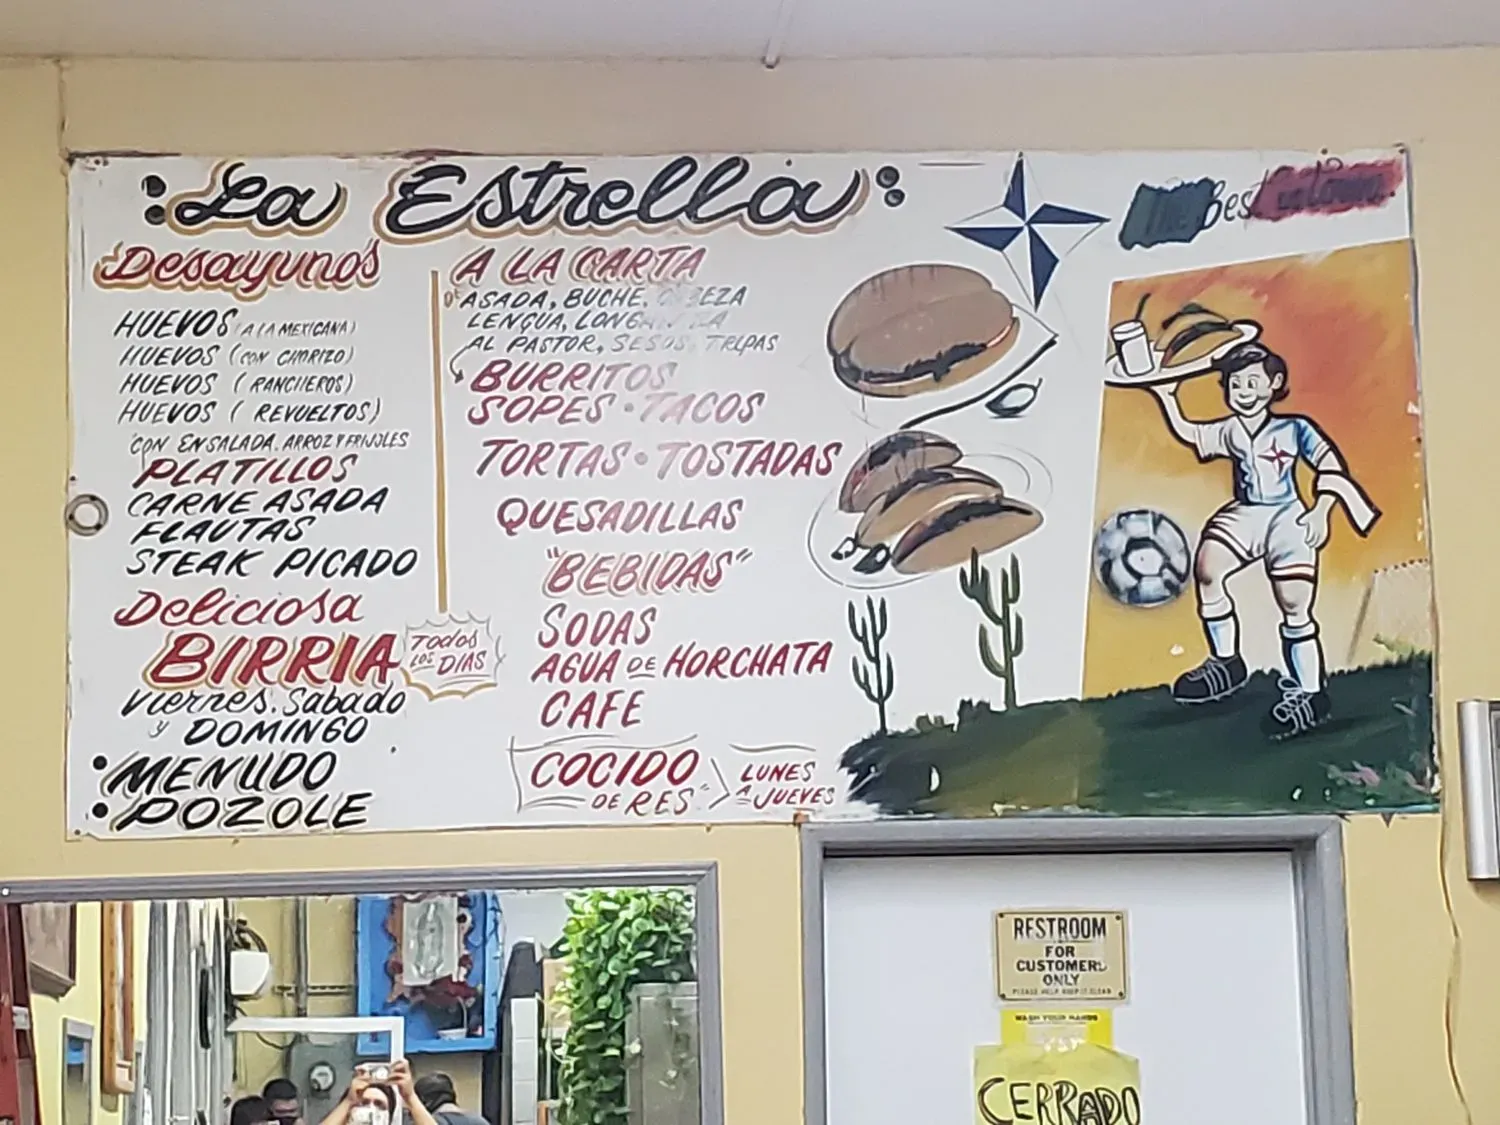 La Estrella
The Best in Town.
Desayunos
HUEVOS (A LA MEXICANA)
HUEVOS (CON CHORIZO)
HUEVOS (RANCHEROS)
HUEVOS (REVUELTOS)
CON ENSALADA, ARROZ Y FRIJOLES
PLATILLOS
CARNE ASADA
FLAUTAS
STEAK PICADO
Deliciosa
BIRRIA
TODOS
LOS DIAS
Viernes, Sabado
y DOMINGO
MENUDO
POZOLE
A LA CARTA
DE ASADA, BUCHE, CABEZA
LENGUA, LONGANIZA
AL PASTOR, SESOS, TRIPAS
BURRITOS
SOPES • TACOS
TORTAS • TOSTADAS
QUESADILLAS
"BEBIDAS"
SODAS
AGUA DE HORCHATA
CAFE
COCIDO
DE RES
LUNES
A JUEVES
RESTROOM
FOR
CUSTOMERS
ONLY
PLEASE HELP KEEP IT CLEAN
WASH YOUR HANDS
CERRADO